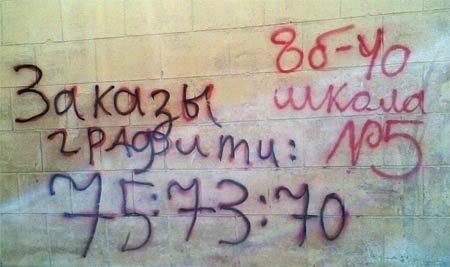 Заказы
граффити:
75:73:70
8б-40
школа
№5